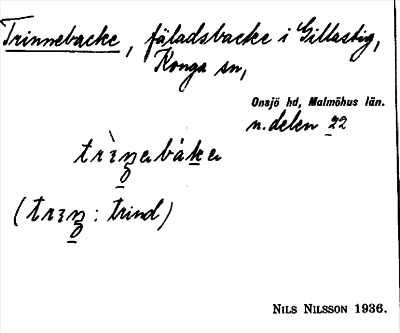 Trinnebacke, fäladsbacke i Gillastig,
Konga sn,
Onsjö hd, Malmöhus län.
n. delen 22
(            : trind)
NILS NILSSON 1936.